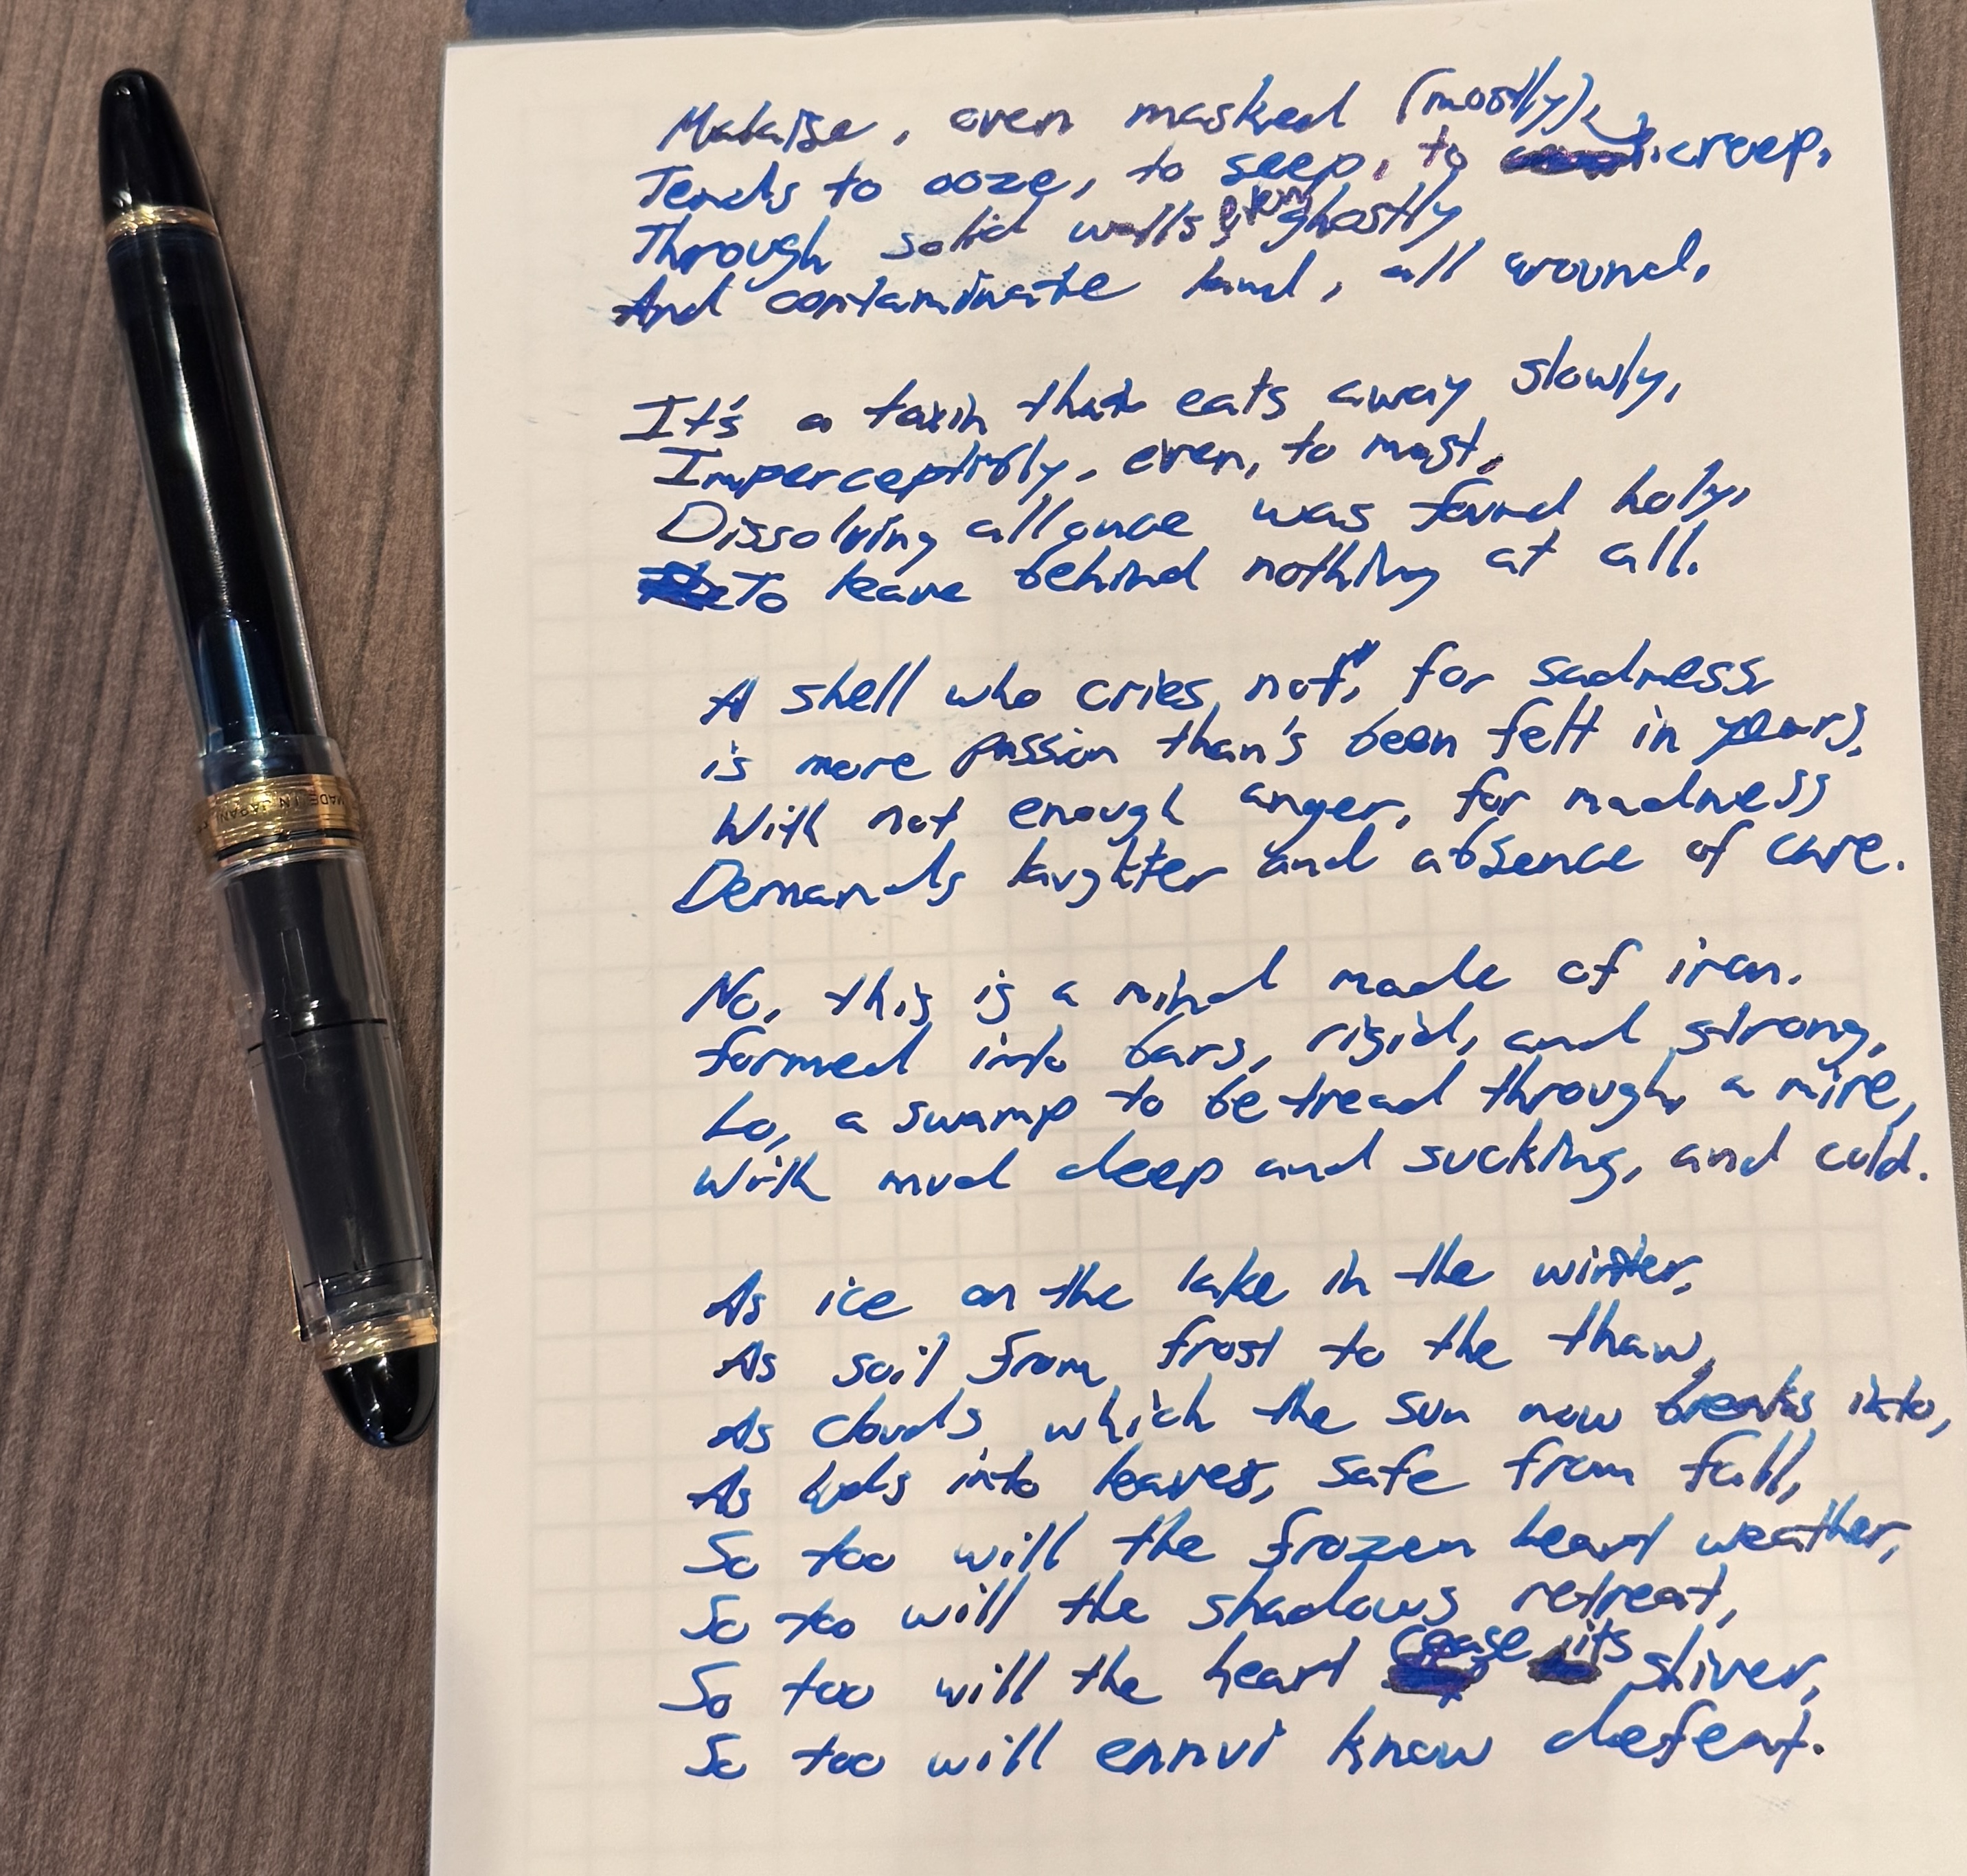 Malaise, even masked (mostly),
Tends to ooze, to seep, to creep,
Through solid walls, even ghostly
And contaminate land, all around.
It's a toxin that eats away slowly,
Imperceptibly, even, to most,
Dissolving all once was found holy,
To leave behind nothing at all.
A shell who cries not, for sadness
is more passion than's been felt in years,
With not enough anger, for madness
Demands laughter and absence of care.
No, this is a mind made of iron.
formed into bars, rigid, and strong,
Lo, a swamp to be tread through, a mire,
With mud deep and sucking, and cold.
As ice on the lake in the winter,
As soil from frost to the thaw,
As clouds which the sun now breaks into,
As buds into leaves, safe from fall,
So too will the frozen heart weather,
So too will the shadows retreat,
So too will the heart cease its shiver,
So too will ennui know defeat.
MADE IN JAPAN